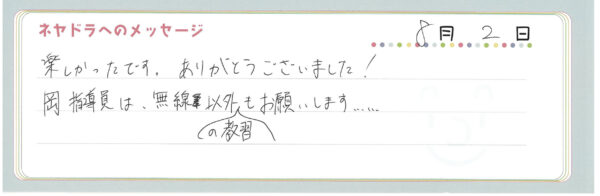 ネヤドラへのメッセージ
8月 2日
楽しかったです。ありがとうございました!
岡指導員は、無線以外もお願いします……
の教習